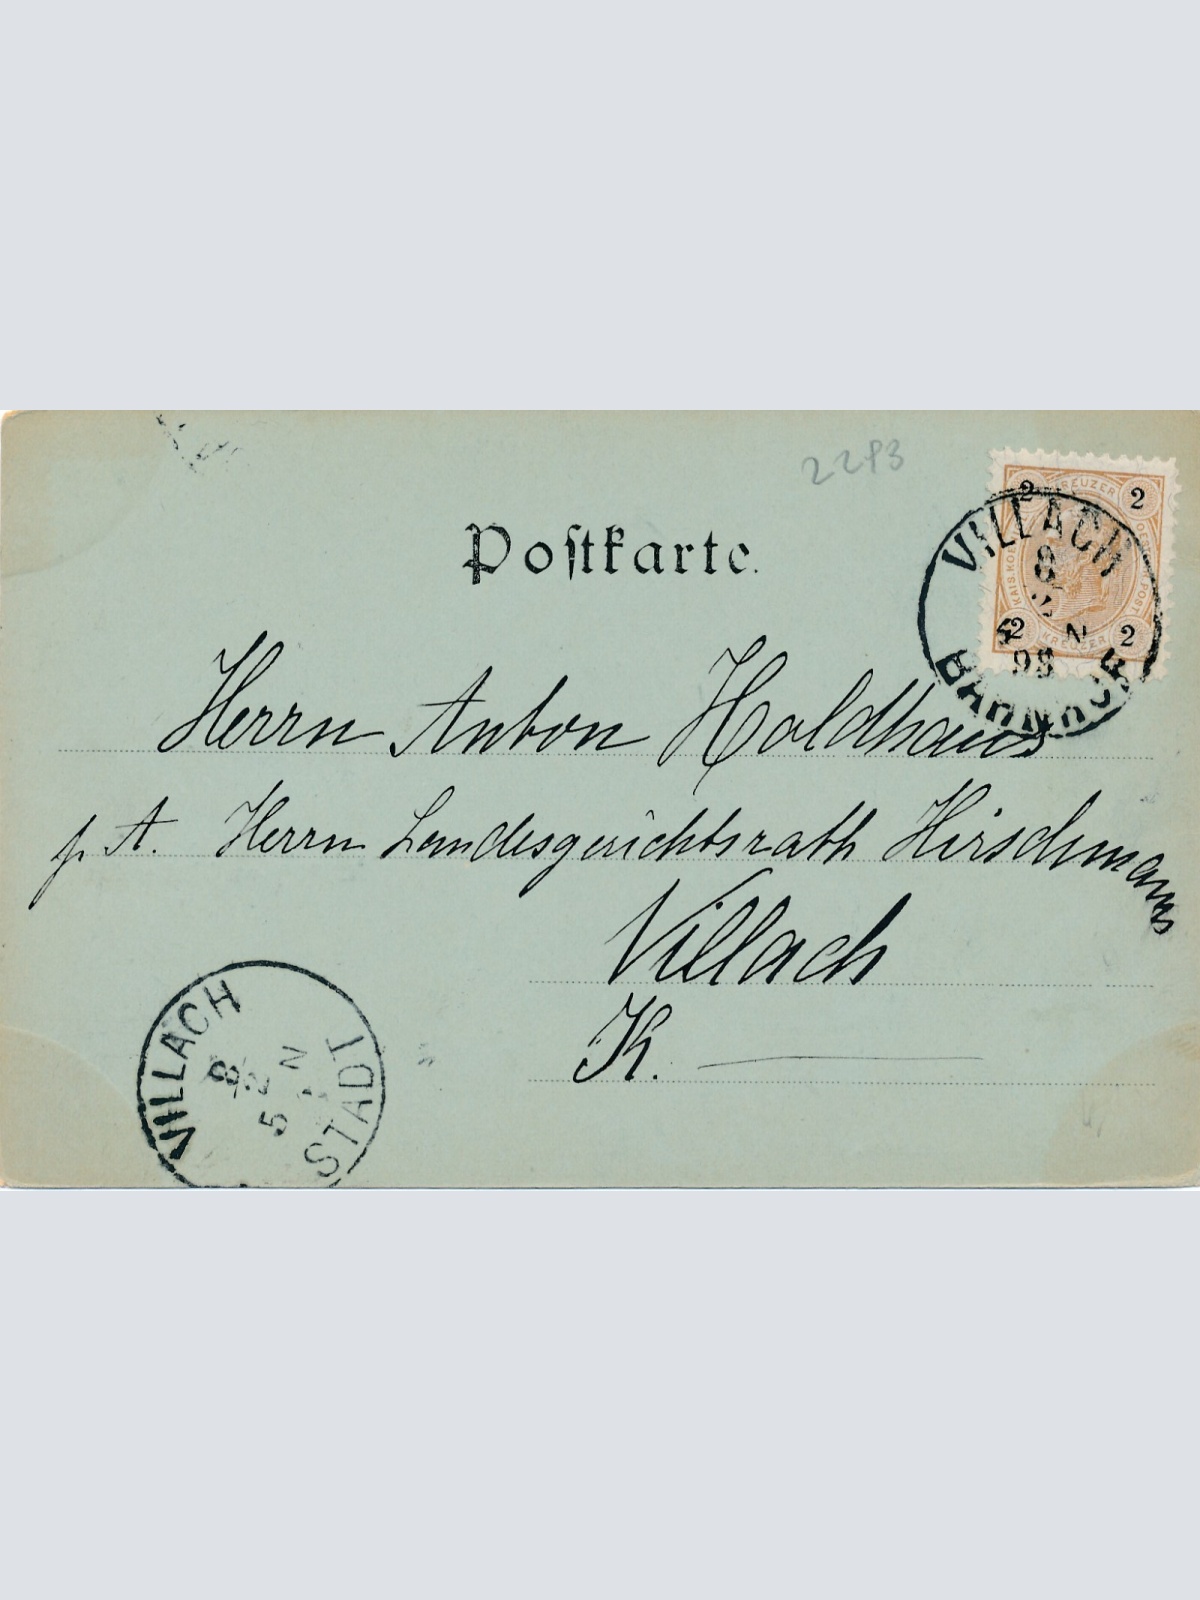 2293
Postkarte.
2 KREUZER 2
KAIS. KOE OESTERR. POST.
2 KREUZER 2
VILLACH
8
2
4 N
98
BAHNHOF
Herrn Anton Holdhaus
p. A. Herrn Landesgerichtsrath Hirschmann
Villach
K.
VILLACH
8
2 N
5
STADT